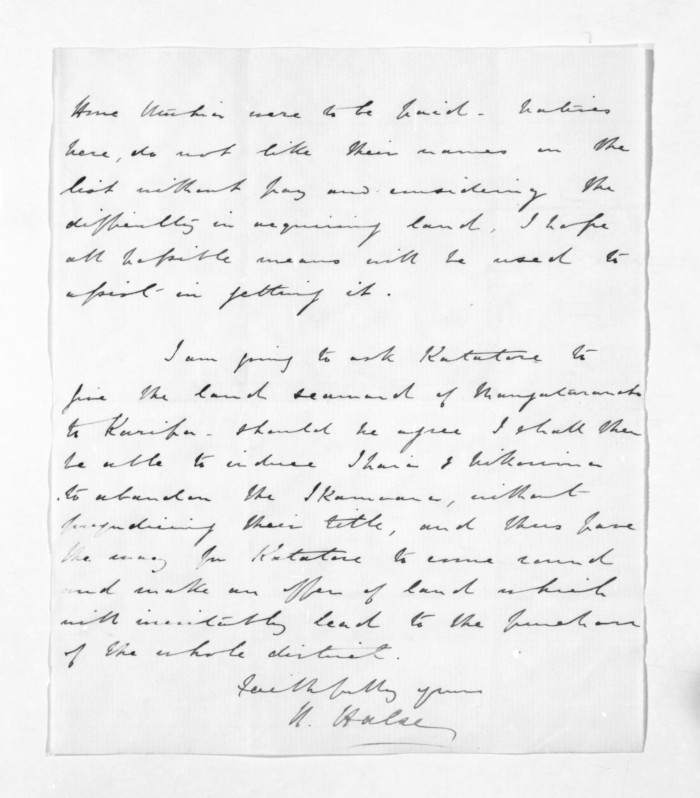 were to be paid - Natives
here, do not like their names on the
list without pay and considering the
difficulty in acquiring land, I hope
all possible means will be used to
assist in getting it.
I am going to ask Katatore to
give the land seaward of
to Karipa - should he agree I shall then
be able to induce Ihaia &
to abandon the Ikamoana, without
prejudicing their title, and thus pave
the way for Katatore to come round
and make an offer of land which
will inevitably lead to the purchase
of the whole district.
Faithfully yours
H. Halse